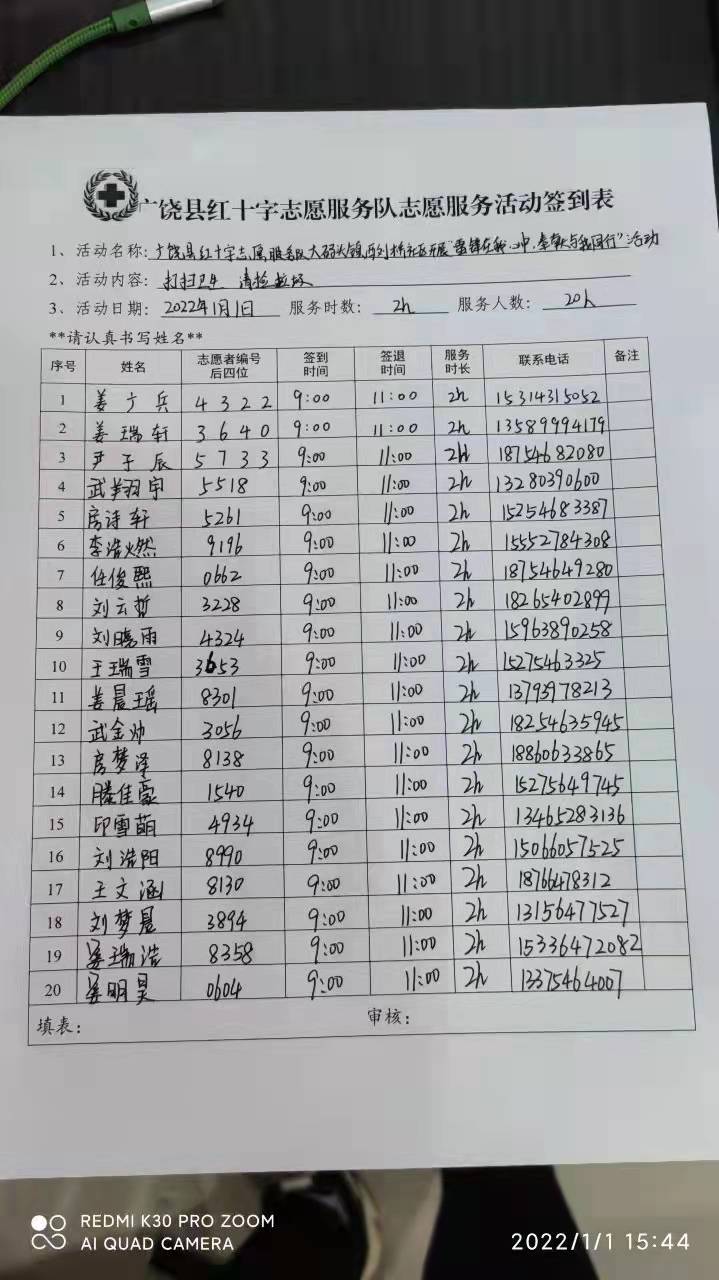 广饶县红十字志愿服务队志愿服务活动签到表
1、活动名称：广饶县红十字志愿服务队大码头镇西刘桥社区开展“雷锋在我心中,奉献与我同行”活动
2、活动内容：打扫卫生 清捡垃圾
3、活动日期：2022年1月1日 服务时数：2h 服务人数：20人
**请认真书写姓名**
序号 姓名 志愿者编号后四位 签到时间 签退时间 服务时长 联系电话 备注
1 姜广兵 4322 9:00 11:00 2h 15314315052
2 姜瑞轩 3640 9:00 11:00 2h 13589994179
3 尹子辰 5733 9:00 11:00 2h 18754682080
4 武翔宇 5518 9:00 11:00 2h 13280390600
5 房诗轩 5261 9:00 11:00 2h 15254683387
6 李浩燃 9196 9:00 11:00 2h 15552784308
7 任俊熙 0662 9:00 11:00 2h 18754649280
8 刘云哲 3228 9:00 11:00 2h 18265402899
9 刘晓雨 4324 9:00 11:00 2h 15963890258
10 王瑞雪 3653 9:00 11:00 2h 15275463325
11 姜晨瑶 8301 9:00 11:00 2h 13793978213
12 武金帅 3056 9:00 11:00 2h 18254635945
13 房梦泽 8138 9:00 11:00 2h 18860633865
14 滕佳豪 1540 9:00 11:00 2h 15275649745
15 印雪萌 4934 9:00 11:00 2h 13465283136
16 刘浩阳 8990 9:00 11:00 2h 15066057525
17 王文涵 8130 9:00 11:00 2h 18766478312
18 刘梦晨 3894 9:00 11:00 2h 13156477527
19 姜瑞浩 8358 9:00 11:00 2h 15336472082
20 姜明昊 0604 9:00 11:00 2h 13375464007
填表： 审核：
REDMI K30 PRO ZOOM
AI QUAD CAMERA
2022/1/1 15:44